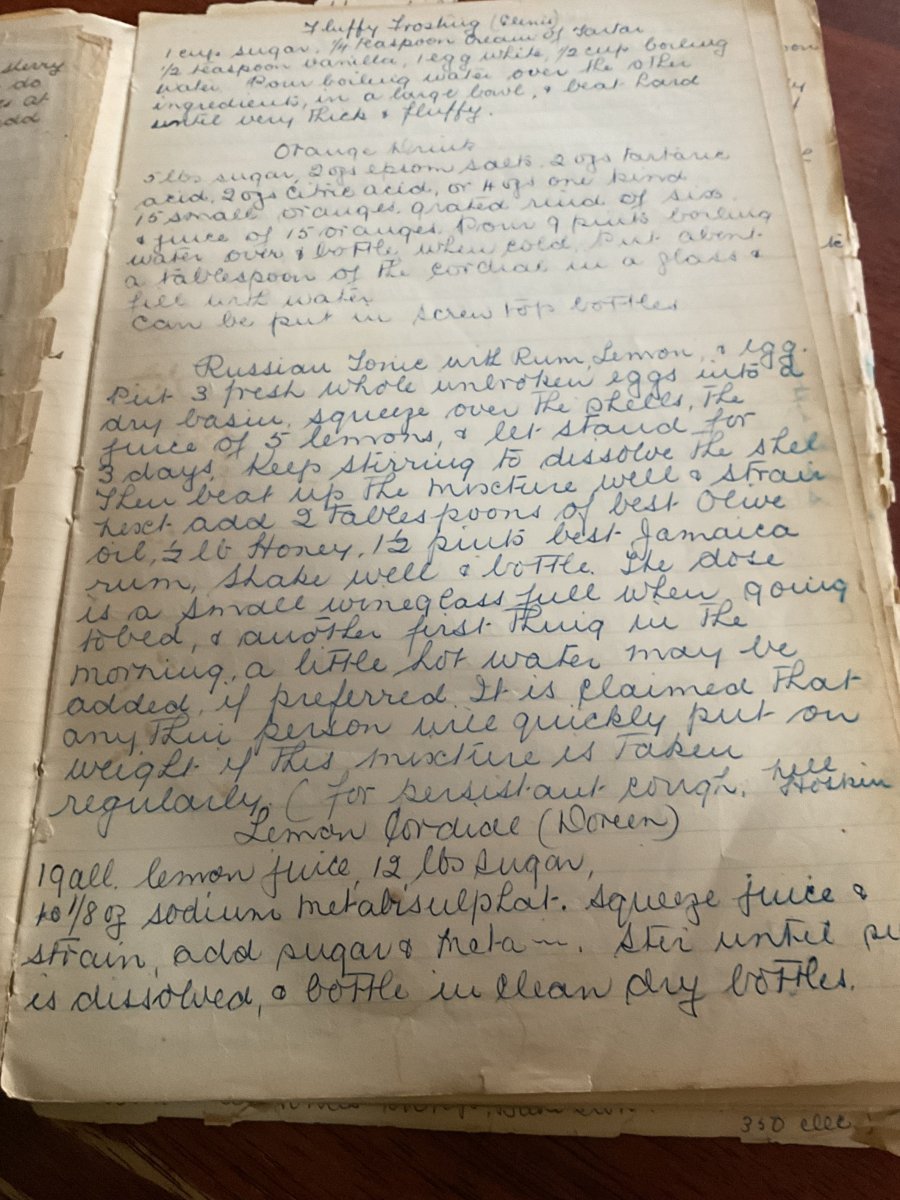 sherry
do
s at
add
Fluffy Frosting (Glenis)
1 cup sugar, 1/4 teaspoon cream of Tartar
1/2 teaspoon vanilla, 1 egg white, 1/2 cup boiling
water. Pour boiling water over the other
ingredients, in a large bowl, & beat hard
until very thick & fluffy.
Orange Drink
5 lbs sugar, 2 ozs epsom salts, 2 ozs tartaric
acid, 2 ozs citric acid, or 4 ozs one kind
15 small oranges, grated rind of six
& juice of 15 oranges. Pour 9 pints boiling
water over & bottle, when cold. Put about
a tablespoon of the cordial in a glass &
fill with water
Can be put in screw top bottles
Russian Tonic with Rum, Lemon, & egg.
Put 3 fresh whole unbroken eggs into a
dry basin, squeeze over the shells, the
juice of 5 lemons, & let stand for
3 days. Keep stirring to dissolve the shel
Then beat up the mixture well & strain
next add 2 tablespoons of best Olive
oil, 1/2 lb Honey, 1 1/2 pints best Jamaica
rum, shake well & bottle. The dose
is a small wineglass full when going
tobed, & another first thing in the
morning, a little hot water may be
added, if preferred. It is claimed that
any thin person will quickly put on
weight if this mixture is taken
regularly. (for persistant cough. Nell
Hoskin
Lemon Cordial (Doreen)
1 gall. lemon juice, 12 lbs sugar,
1/8 oz sodium metabisulphat. Squeeze juice &
strain, add sugar & meta~. Stir until su
is dissolved, & bottle in clean dry bottles.